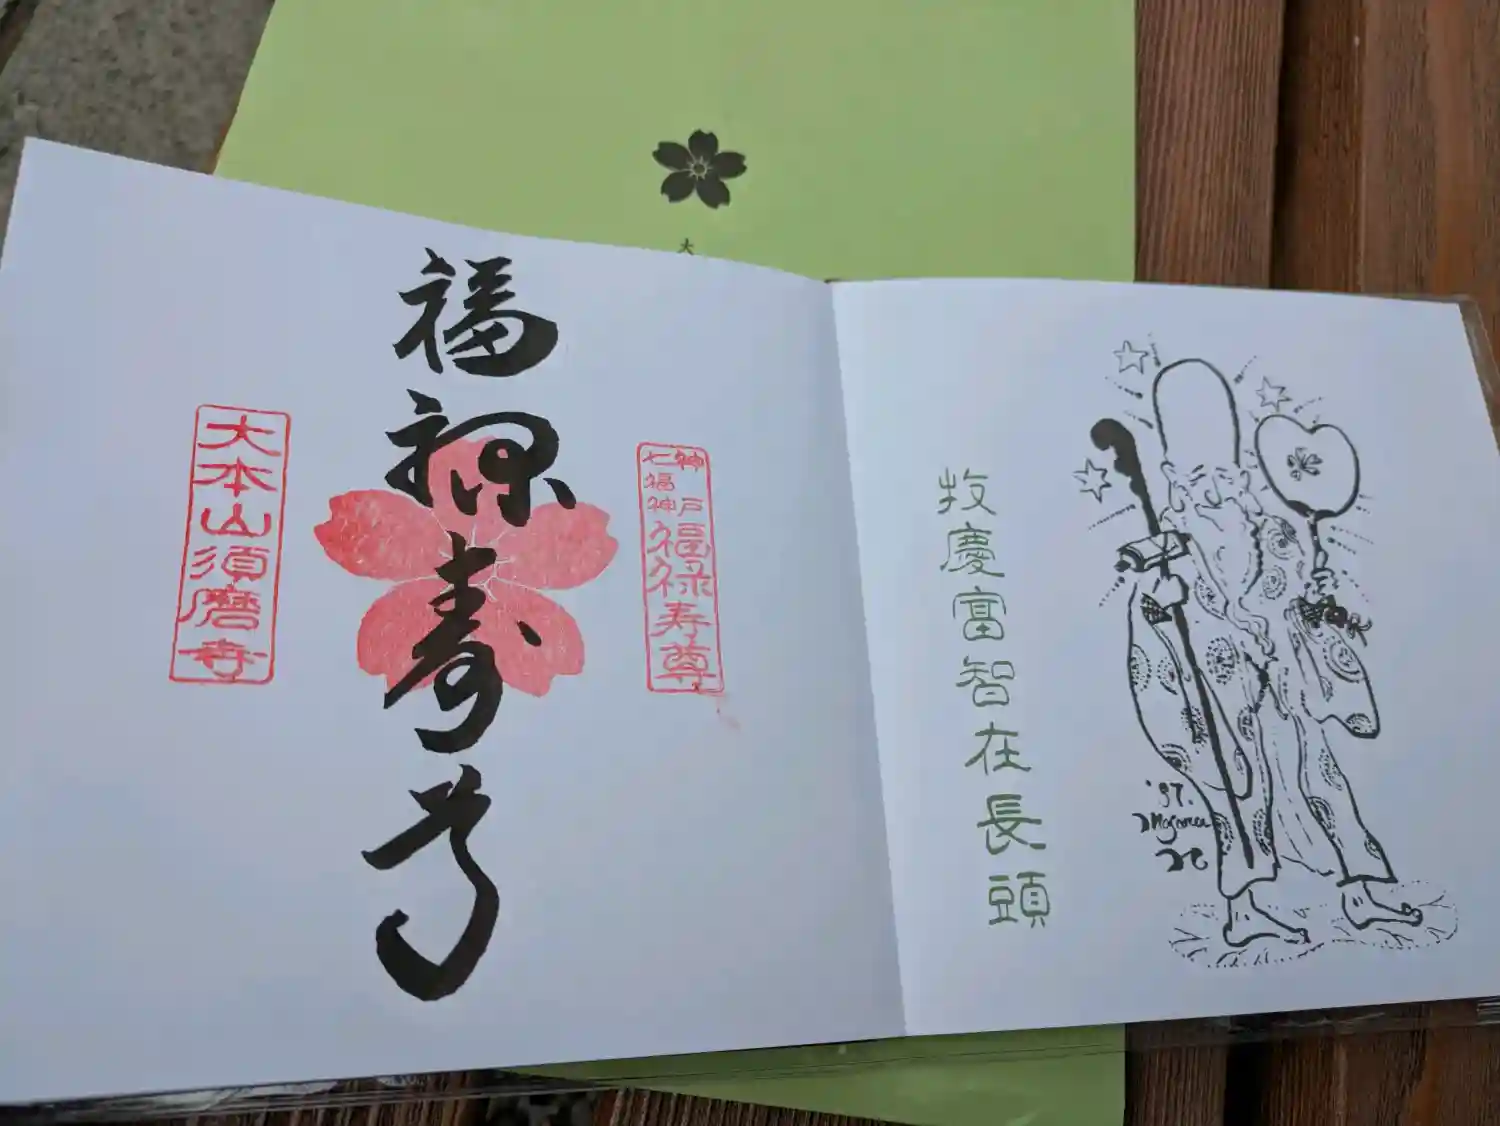 大
福祿寿尊
大本山須磨寺
神戸
七福神
福禄寿尊
牧慶富智在長頭
'97.